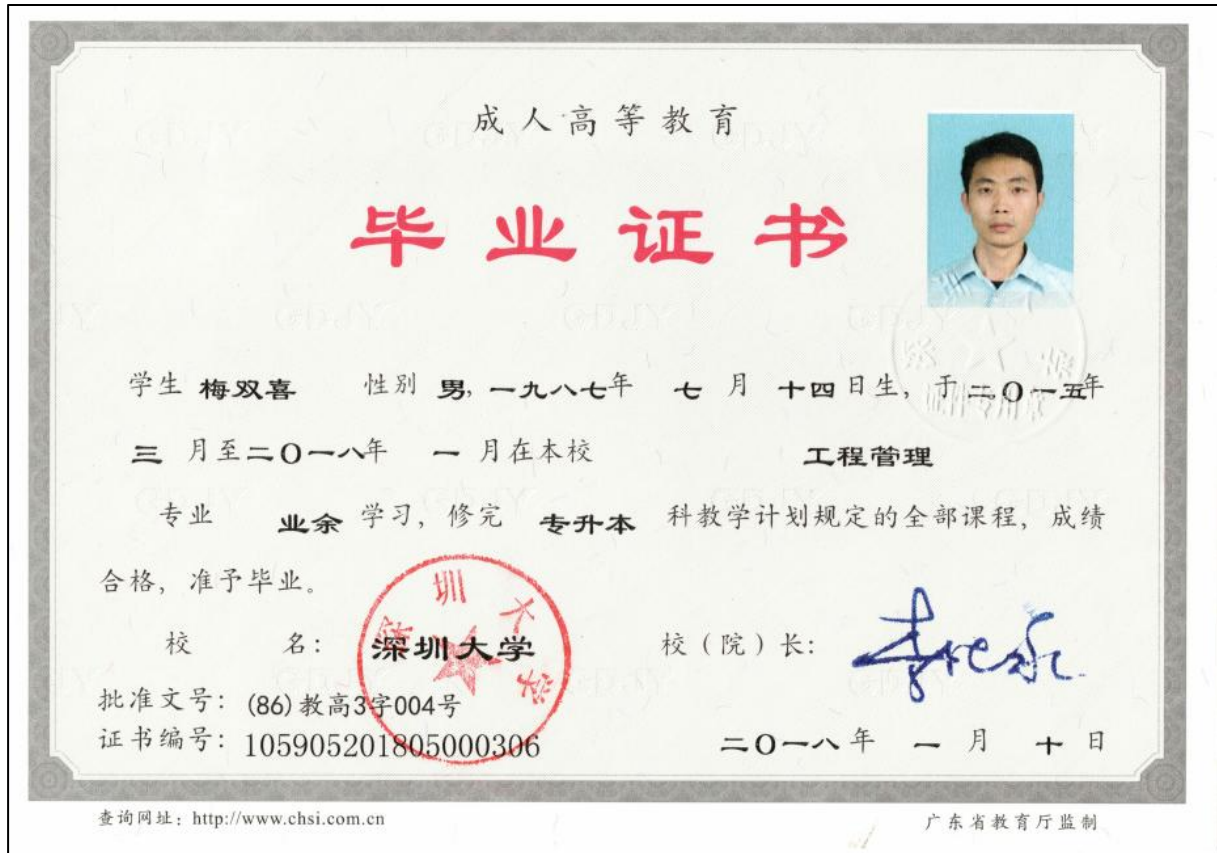 成人高等教育
毕业证书
学生 梅双喜 性别 男, 一九八七年 七 月 十四 日生, 于 二〇一五年
三 月至二〇一八年 一 月在本校 工程管理
专业 业余 学习, 修完 专升本 科教学计划规定的全部课程, 成绩
合格, 准予毕业。
深圳大学
校 名: 深圳大学 校(院)长:
批准文号: (86)教高3字004号
证书编号: 105905201805000306 二〇一八年 一 月 十 日
查询网址: http://www.chsi.com.cn 广东省教育厅监制